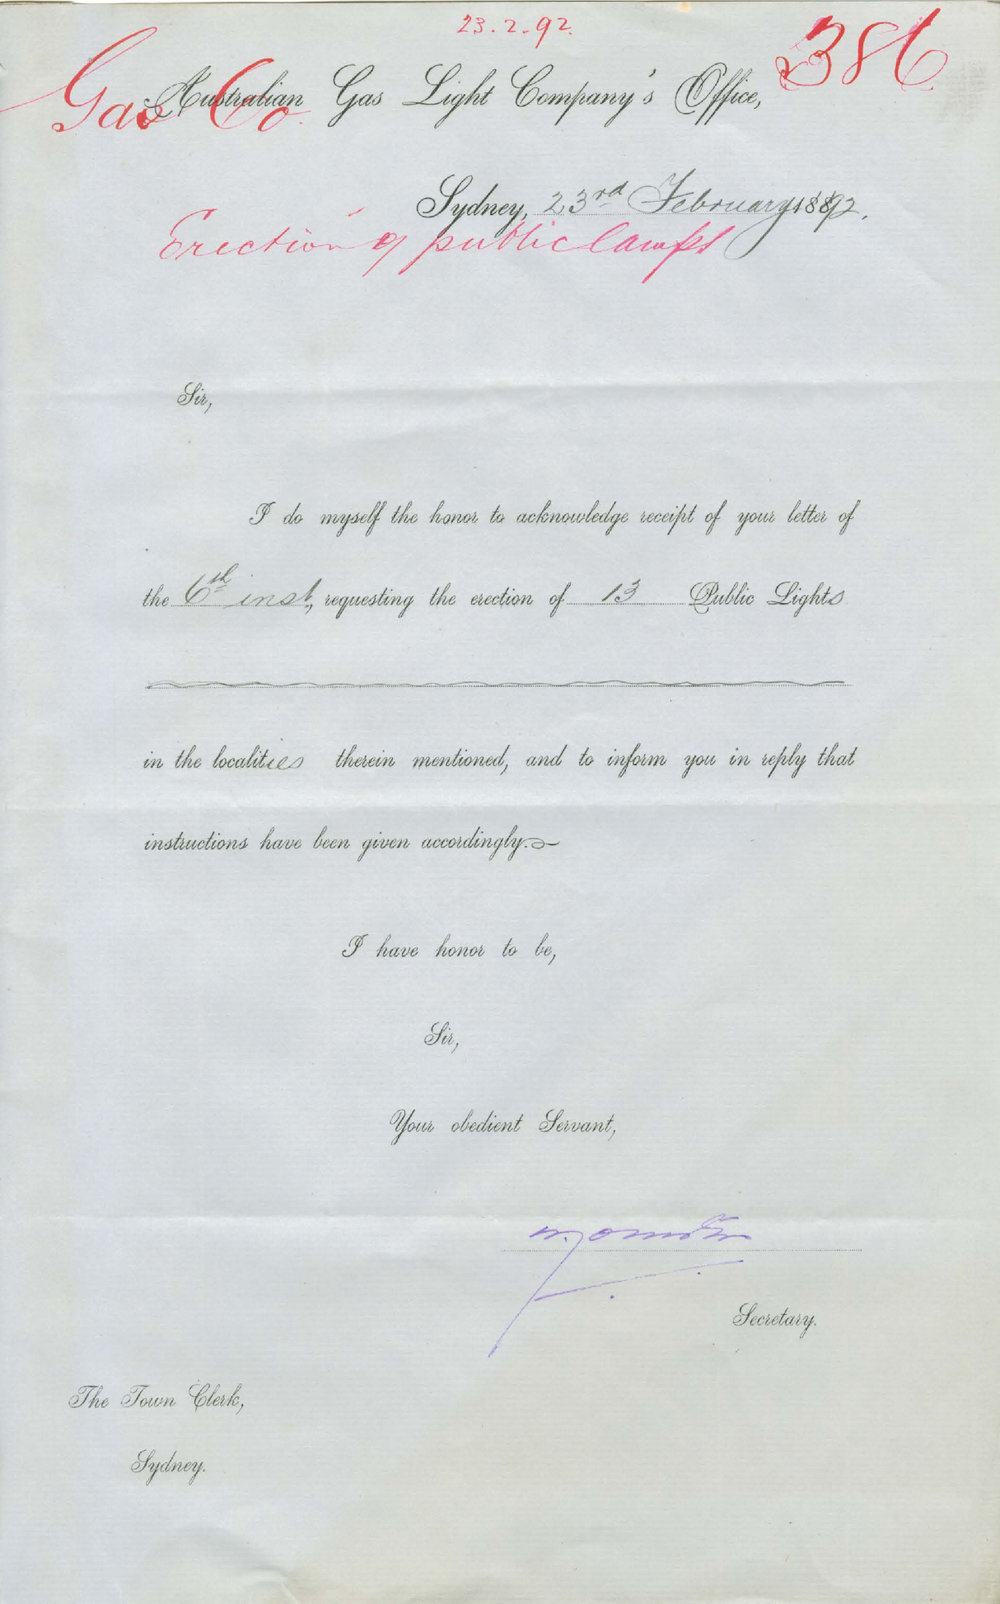 23.2.92.
386
Gas Co.
Australian Gas Light Company's Office,
Sydney, 23rd February 1892.
Erection of public lamps
Sir,
I do myself the honor to acknowledge receipt of your letter of
the 6th inst, requesting the erection of 13 Public Lights
in the localities therein mentioned, and to inform you in reply that
instructions have been given accordingly.
I have honor to be,
Sir,
Your obedient Servant,
Secretary.
The Town Clerk,
Sydney.